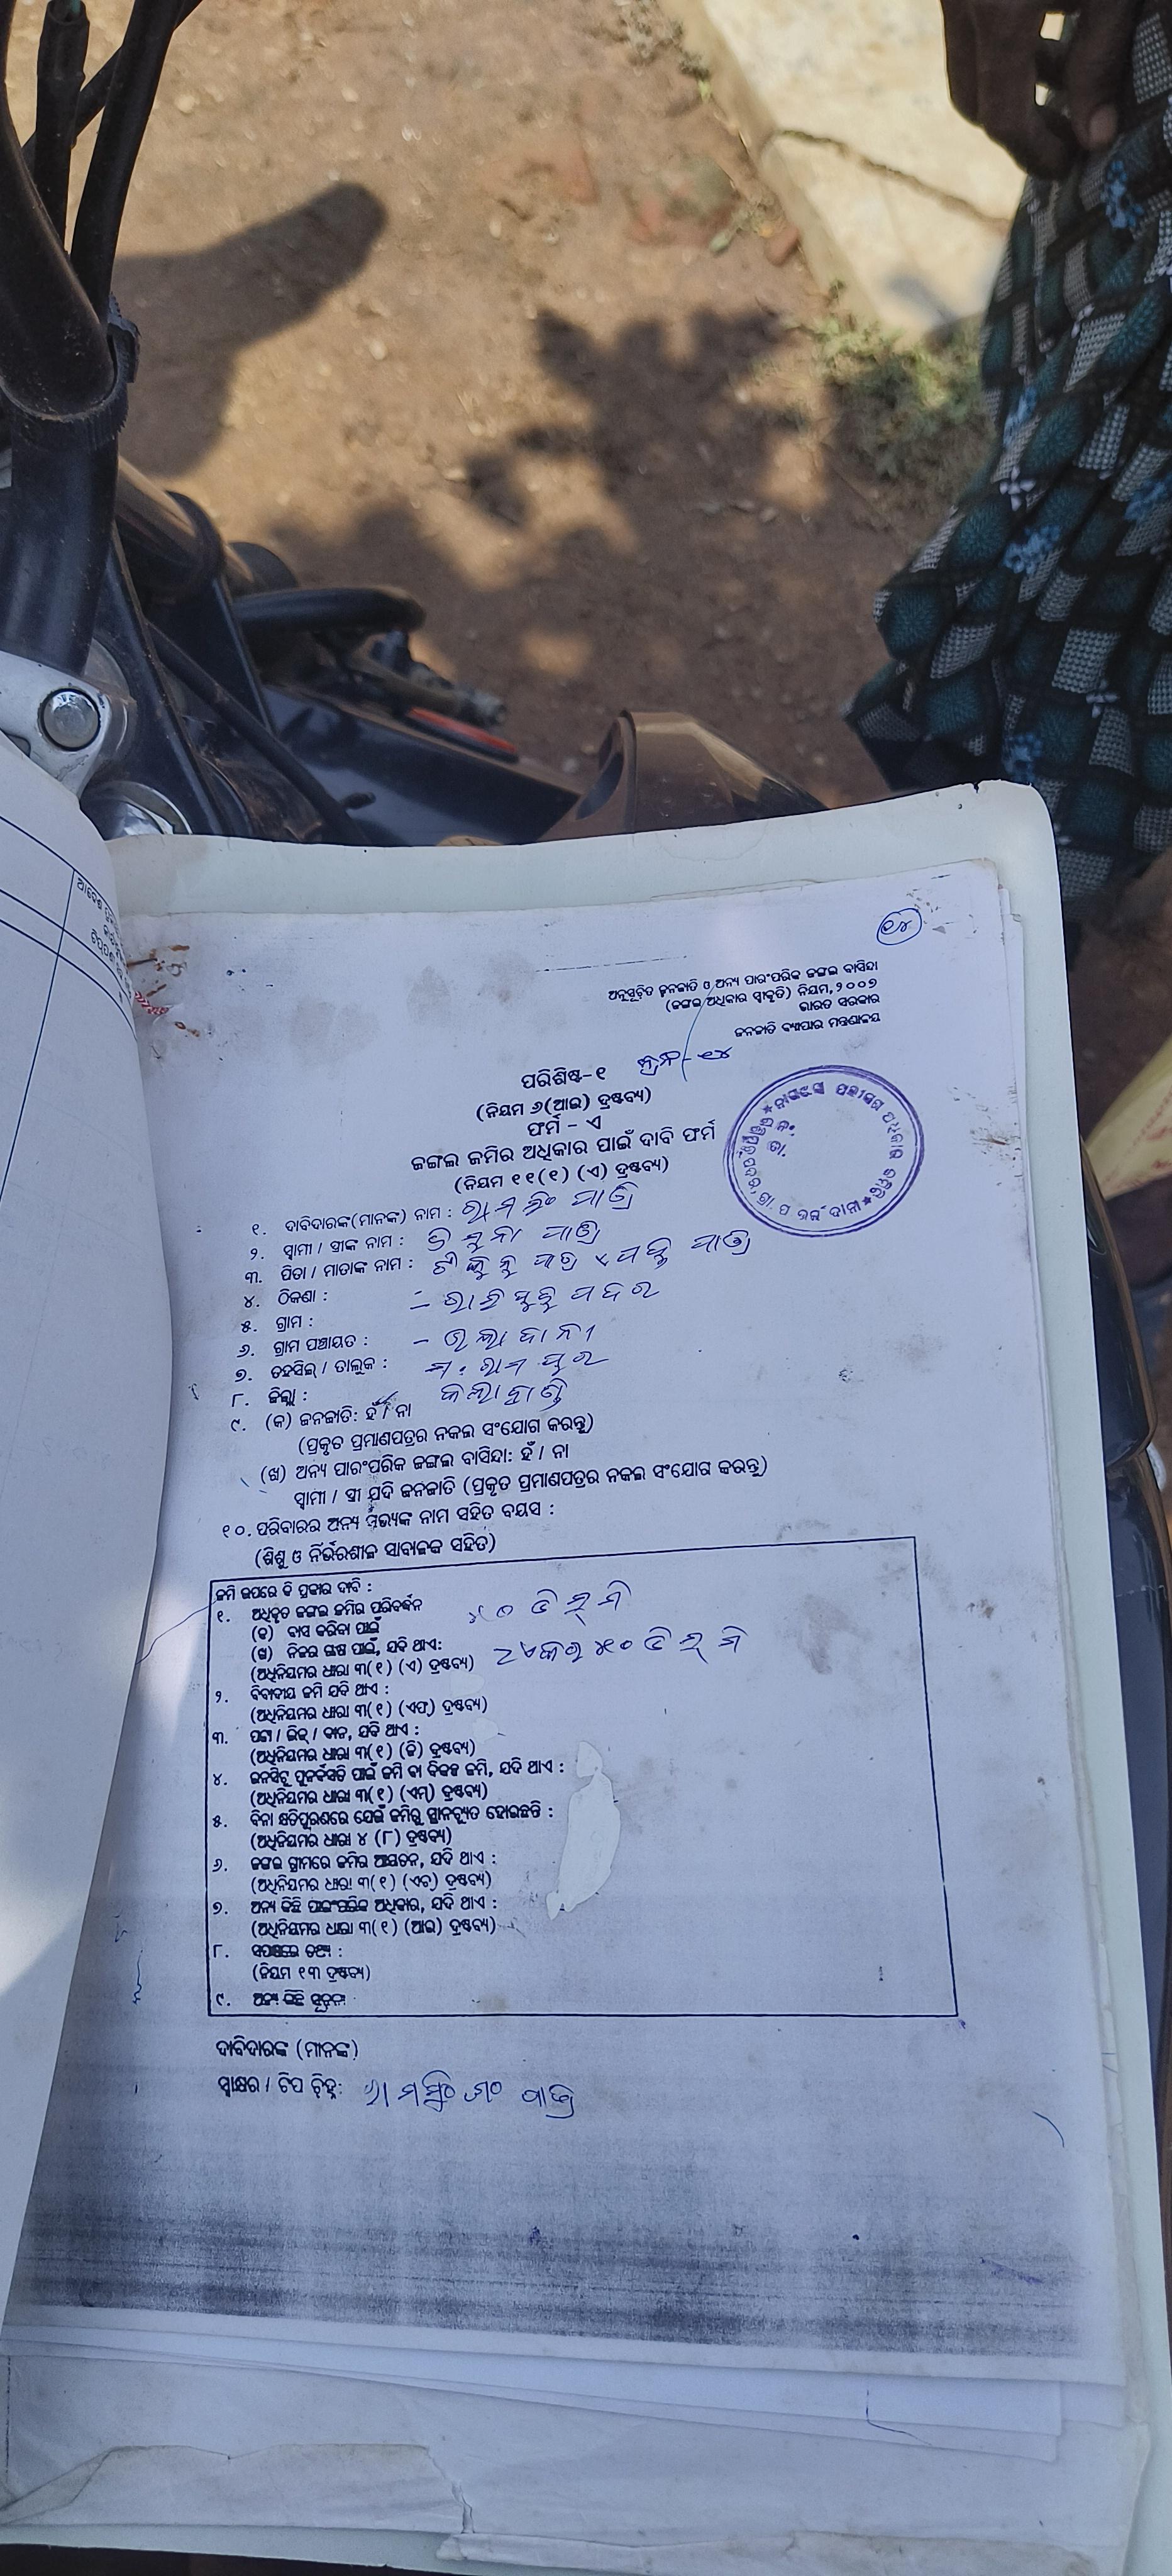 ୧୪
ଅନୁସୂଚିତ ଜନଜାତି ଓ ଅନ୍ୟ ପାରଂପରିକ ଜଙ୍ଗଲ ବାସିନ୍ଦା
(ଜଙ୍ଗଲ ଅଧିକାର ସ୍ୱୀକୃତି) ନିୟମ, ୨୦୦୭
ଭାରତ ସରକାର
ଜନଜାତି ବ୍ୟାପାର ମନ୍ତ୍ରଣାଳୟ
ପରିଶିଷ୍ଟ-୧
(ନିୟମ ୬(ଆଇ) ଦ୍ରଷ୍ଟବ୍ୟ)
ଫର୍ମ - ଏ
ଜଙ୍ଗଲ ଜମିର ଅଧିକାର ପାଇଁ ଦାବି ଫର୍ମ
(ନିୟମ ୧୧(୧) (ଏ) ଦ୍ରଷ୍ଟବ୍ୟ)
୧. ଦାବିଦାରଙ୍କ(ମାନଙ୍କ) ନାମ : ରାମସିଂ ପାତ୍ର
୨. ସ୍ୱାମୀ / ସ୍ତ୍ରୀଙ୍କ ନାମ : ପାତ୍ର
୩. ପିତା / ମାତାଙ୍କ ନାମ : ପାତ୍ର ପାତ୍ର
୪. ଠିକଣା :
୫. ଗ୍ରାମ :
୬. ଗ୍ରାମ ପଞ୍ଚାୟତ :
୭. ତହସିଲ୍ / ତାଲୁକ : ମ. ରାମପୁର
୮. ଜିଲ୍ଲା : କଳାହାଣ୍ଡି
୯. (କ) ଜନଜାତି: ହଁ / ନା
(ପ୍ରକୃତ ପ୍ରମାଣପତ୍ରର ନକଲ ସଂଯୋଗ କରନ୍ତୁ)
(ଖ) ଅନ୍ୟ ପାରଂପରିକ ଜଙ୍ଗଲ ବାସିନ୍ଦା: ହଁ / ନା
ସ୍ୱାମୀ / ସ୍ତ୍ରୀ ଯଦି ଜନଜାତି (ପ୍ରକୃତ ପ୍ରମାଣପତ୍ରର ନକଲ ସଂଯୋଗ କରନ୍ତୁ)
୧୦. ପରିବାରର ଅନ୍ୟ ସଭ୍ୟଙ୍କ ନାମ ସହିତ ବୟସ :
(ଶିଶୁ ଓ ନିର୍ଭରଶୀଳ ସାବାଳକ ସହିତ)
ଜମି ଉପରେ କି ପ୍ରକାର ଦାବି :
୧. ଅଧିକୃତ ଜଙ୍ଗଲ ଜମିର ପରିବର୍ଦ୍ଧନ
(କ) ବାସ କରିବା ପାଇଁ
(ଖ) ନିଜର ଚାଷ ପାଇଁ, ଯଦି ଥାଏ: ୨ ଏକର ୫୦ ଡିସ୍ମି
(ଅଧିନିୟମର ଧାରା ୩(୧) (ଏ) ଦ୍ରଷ୍ଟବ୍ୟ)
୨. ବିବାଦୀୟ ଜମି ଯଦି ଥାଏ :
(ଅଧିନିୟମର ଧାରା ୩(୧) (ଏଫ୍) ଦ୍ରଷ୍ଟବ୍ୟ)
୩. ପଟ୍ଟା / ଲିଜ୍ / ଦାନ, ଯଦି ଥାଏ :
(ଅଧିନିୟମର ଧାରା ୩(୧) (ଜି) ଦ୍ରଷ୍ଟବ୍ୟ)
୪. ଇନସିଟୁ ପୁନର୍ବସତି ପାଇଁ ଜମି ବା ବିକଳ୍ପ ଜମି, ଯଦି ଥାଏ :
(ଅଧିନିୟମର ଧାରା ୩(୧) (ଏମ୍) ଦ୍ରଷ୍ଟବ୍ୟ)
୫. ବିନା କ୍ଷତିପୂରଣରେ ଯେଉଁ ଜମିରୁ ସ୍ଥାନଚ୍ୟୁତ ହୋଇଛନ୍ତି :
(ଅଧିନିୟମର ଧାରା ୪ (୮) ଦ୍ରଷ୍ଟବ୍ୟ)
୬. ଜଙ୍ଗଲ ଗ୍ରାମରେ ଜମିର ଆୟତନ, ଯଦି ଥାଏ :
(ଅଧିନିୟମର ଧାରା ୩(୧) (ଏଚ୍) ଦ୍ରଷ୍ଟବ୍ୟ)
୭. ଅନ୍ୟ କିଛି ପାରଂପରିକ ଅଧିକାର, ଯଦି ଥାଏ :
(ଅଧିନିୟମର ଧାରା ୩(୧) (ଆଇ) ଦ୍ରଷ୍ଟବ୍ୟ)
୮. ସପକ୍ଷରେ ତଥ୍ୟ :
(ନିୟମ ୧୩ ଦ୍ରଷ୍ଟବ୍ୟ)
୯. ଅନ୍ୟ କିଛି ସୂଚନା
ଦାବିଦାରଙ୍କ (ମାନଙ୍କ)
ସ୍ୱାକ୍ଷର / ଟିପ ଚିହ୍ନ: ପାତ୍ର